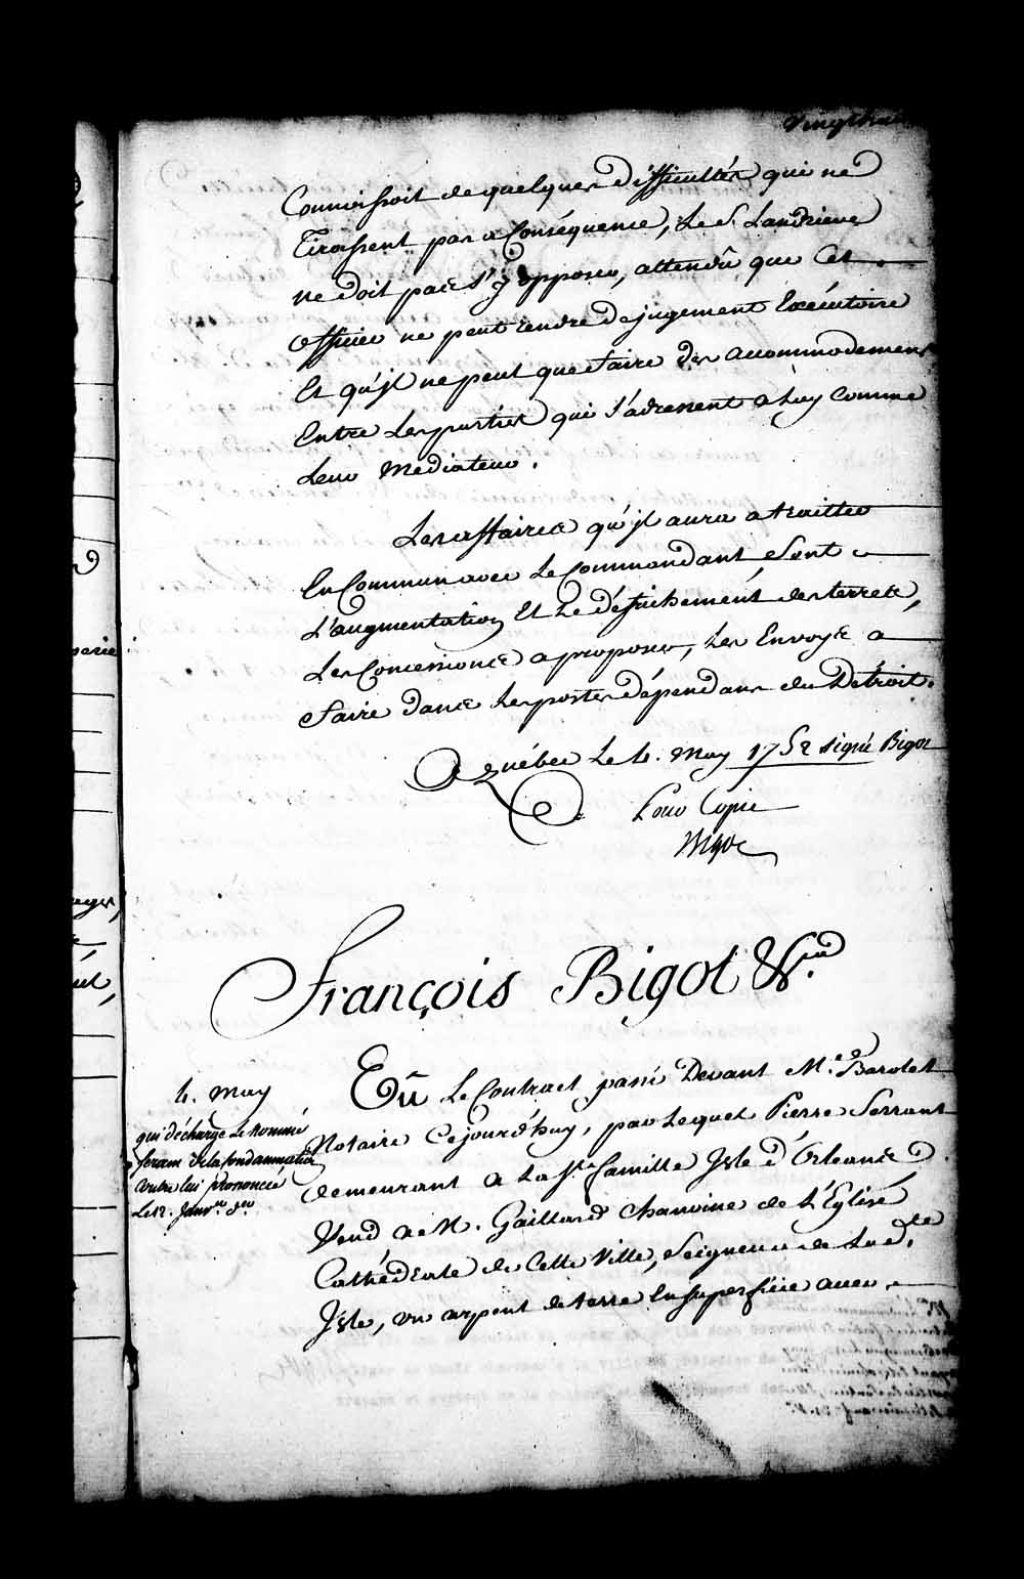 Connoissoit de quelques difficultés qui ne
tirassent pas a Conséquence, Le S. Landrieve
ne doit pas s'y opposer, attendû que Cet
officier ne peut rendre de jugement Exécutoire
Et qu'jl ne peut que faire des accommodemens
Entre Les parties qui s'adressent a Luy comme
Leur Mediateur.
Les affaires qu'jl aura a traitter
En Commun avec Le Commandant, Sont
L'augmentation Et Le défrichement des terres,
Les Concessions a proposer, Les Envoys a
faire dans Les postes dépendans du Détroit.
A québec Le 4. May 1752 signé Bigot
Pour Copie
Bigot
François Bigot &ca.
4. May
qui décharge Le Nommé
Serant de la Condamnation
contre lui prononcée
Le 12. Janv.er d.er
Vû Le Contract passé Devant Me. Barolet
Notaire Cejourd'huy, par Lequel Pierre Serrant
demeurant a La Ste. famille Jsle d'Orleans
Vend a M. Gaillard Chanoine de L'Eglise
Cathédrale de Cette Ville, Seigneur de Lad.te
Jsle, un arpent de terre En superficie avec